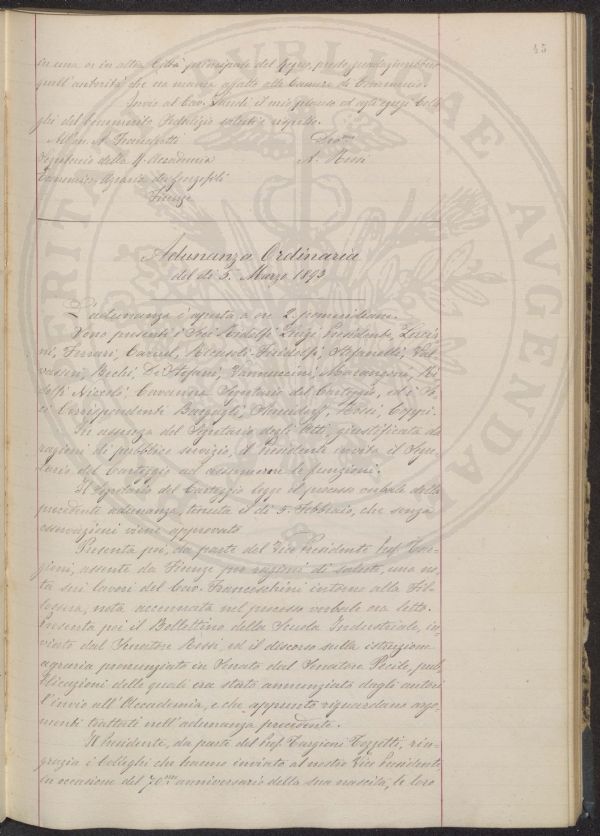 45
in una o in altra Città principale del Regno, presto
quell'autorità che in massa affatto alle Camere di Commercio.
Invio al Cav. il mio ed agli egregi Colle
ghi del Sodalizio saluti e
All'on. A. Franchetti
Segretario della R. Accademia
A. Rossi
Economico-Agraria dei Georgofili
Firenze
Adunanza Ordinaria
del dì 5 Marzo 1893
L'adunanza è aperta a ore 2 pomeridiane.
Sono presenti i Soci Ridolfi Luigi Presidente,
ni, Ferrari, Caruel, Ricasoli Firidolfi, Stefanelli, Val
vassori, Bechi, De Stefani, Vannuccini, Marangoni, Ri
dolfi Niccolò, Cavanna Segretario del Carteggio, ed i So
ci Corrispondenti Rossi, Coppi.
In assenza del Segretario degli Atti, giustificata da
ragioni di pubblico servizio, il Presidente invita il Segre
tario del Carteggio ad assumerne le funzioni.
Il Segretario del Carteggio legge il processo verbale della
precedente adunanza, tenuta il dì 5 Febbraio, che senza
osservazioni viene approvato.
Presenta poi, da parte del Vice Presidente Prof. Tar
gioni, assente da Firenze per ragioni di salute, una no
ta sui lavori del Cav. Franceschini intorno alla Fil
lossera, nota accennata nel processo verbale ora letto.
Presenta poi il Bollettino della Scuola Industriale, in
viato dal Senatore Rossi, ed il discorso sulla istruzione
agraria pronunziato in Senato dal Senatore Pecile, pub
blicazioni delle quali era stato annunziato dagli autori
l'invio all'Accademia, e che appunto riguardano argo
menti trattati nell'adunanza precedente.
Il Presidente, da parte del Prof. Targioni Tozzetti, rin
grazia i Colleghi che hanno inviato al nostro Vice Presidente,
in occasione del 70mo anniversario della sua nascita, le loro